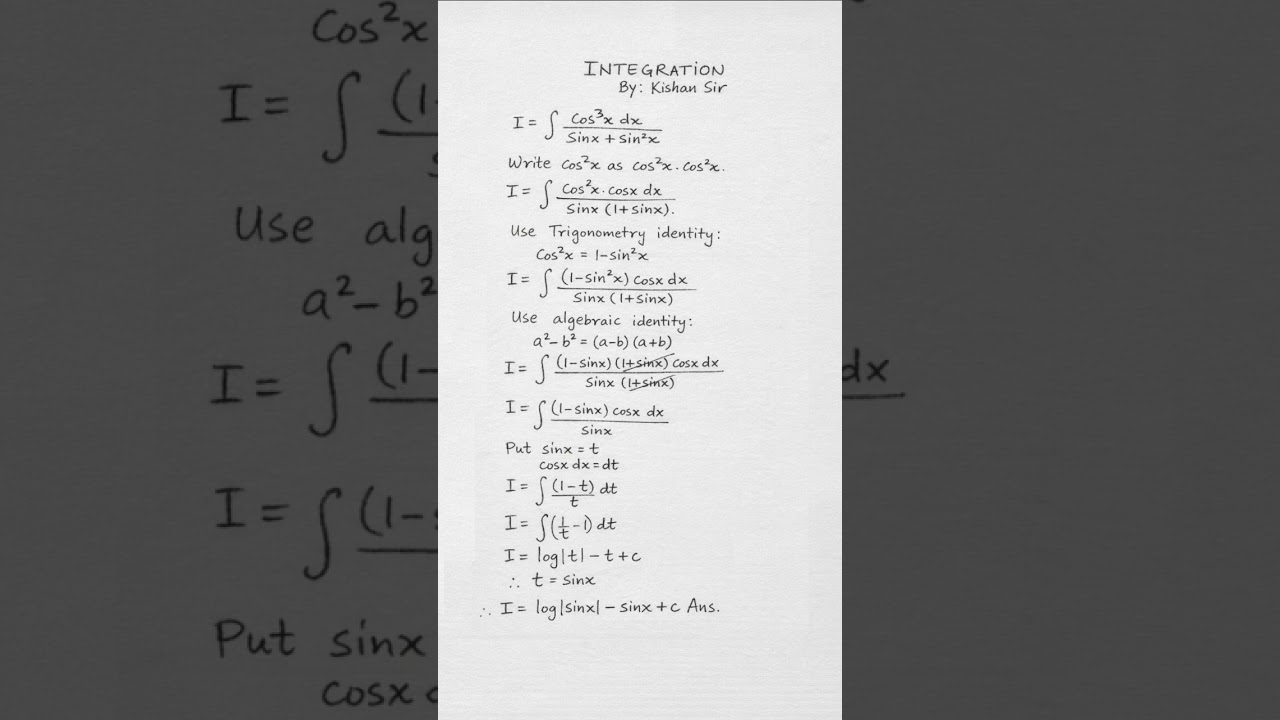 INTEGRATION
By: Kishan Sir
I = ∫ cos³x dx / sinx + sin²x
Write cos²x as cos²x . cos²x.
I = ∫ cos²x . cosx dx / sinx (1+sinx).
Use Trigonometry identity:
cos²x = 1-sin²x
I = ∫ (1-sin²x) cosx dx / sinx (1+sinx)
Use algebraic identity:
a²-b² = (a-b) (a+b)
I = ∫ (1-sinx) (1+sinx) cosx dx / sinx (1+sinx)
I = ∫ (1-sinx) cosx dx / sinx
Put sinx = t
cosx dx = dt
I = ∫ (1-t) / t dt
I = ∫ (1/t - 1) dt
I = log|t| - t + c
∴ t = sinx
∴ I = log|sinx| - sinx + c Ans.
Cos²x
I = ∫ (1-
Use alg
a² - b²
I = ∫ (1-
dx
I = ∫ (1-
Put sinx
cosx